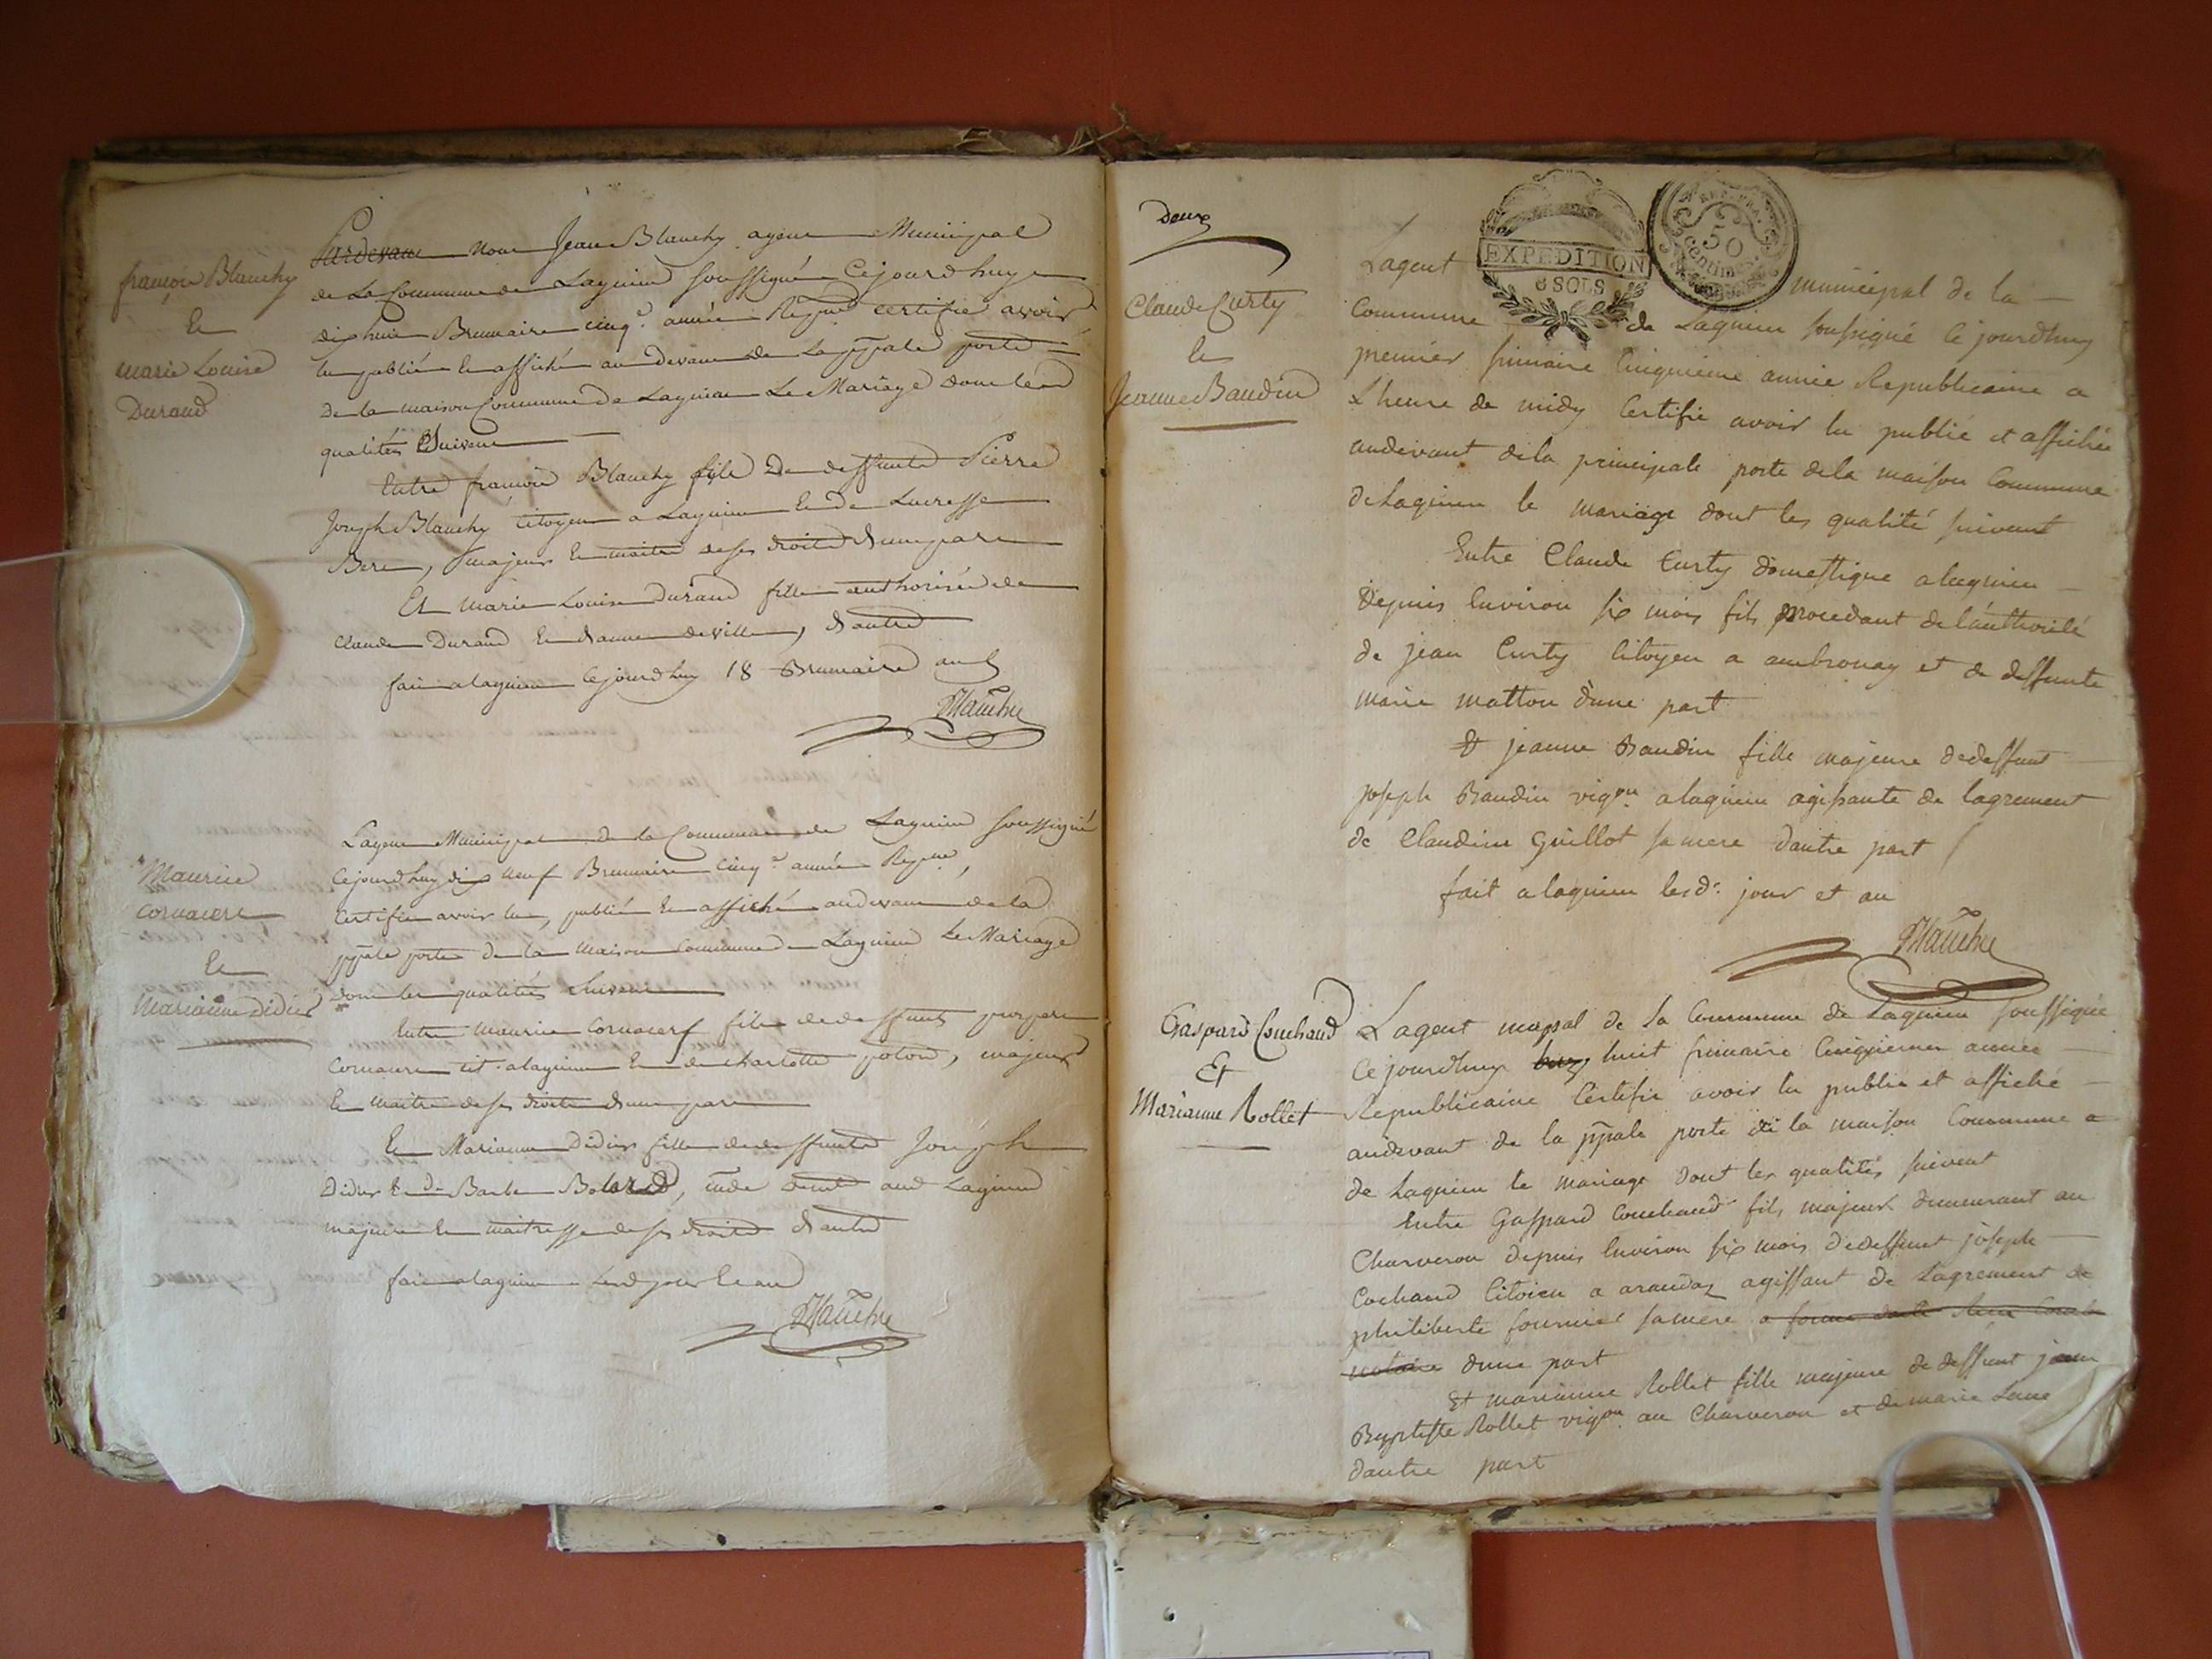 françois Blanchy
et
marie Louise
Durand
Pardevant Nous Jean Blanchy agent Municipal
de La Commune de Lagnieu soussigné Cejourdhuy
dix huit Brumaire cinq.e année Repque certifie avoir
lu publié et affiché au devant de La ppale porte
de la maison Commune de Lagnieu Le Mariage dont les
qualités Suivent
Entre françois Blanchy fils de deffunt Pierre
Joseph Blanchy citoyen a Lagnieu et de Lucresse
majeur et maitre de ses droits d'une part
Et marie Louise Durand fille authorisée de
Claude Durand et d'anne deville, d'autre
fait a lagnieu Cejourdhuy 18 Brumaire an 5
Blanchy
Maurice
cornacere
et
Marianne Didier
L'agent Municipal de la Commune de Lagnieu soussigné
Cejourdhuy dix neuf Brumaire cinq.e année Repque,
Certifie avoir lu, publié et affiché audevant de la
ppale porte de la maison commune de Lagnieu Le Mariage
dont les qualités Suivent
Entre maurice fils de deffunt
cit. a lagnieu et de charlotte majeur
et maitre de ses droits d'une part
Et Marianne Didier fille de deffunt Joseph
Didier et de Barbe aud Lagnieu
majeure et maitresse de ses droits d'autre
fait a lagnieu Lesd jour et an
Blanchy
deux
Claude Curty
et
Jeanne Baudin
EXPEDITION
6 SOLS
50
centimes
Lagent municipal de la
Commune de Lagnieu soussigné cejourdhuy
premier frimaire Cinquieme année Republicaine a
Lheure de midy Certifie avoir lu publié et affiché
audevant dela principale porte dela maison Commune
de Lagnieu le mariage dont les qualité suivent
Entre Claude Curty domestique a lagnieu
depuis Environ six mois fils procedant de l'authorité
de jean Curty Citoyen a ambronay et de deffunte
marie matton d'une part
Et jeanne Baudin fille majeure dedeffunt
joseph Baudin vigon a lagnieu agissante de lagrement
de Claudine Guillot sa mere dautre part
fait a lagnieu lesd.s jour et an
Blanchy
Gaspard Couchaud
Et
Marianne Rollet
Lagent mupal de la Commune de Lagnieu soussigné
Cejourdhuy huit frimaire Cinquieme année
Republicaine Certifie avoir lu publié et affiché
audevant de la ppale porte de la maison Commune
de Lagnieu le mariage dont les qualités suivent
Entre Gaspard Couchaud fils majeur demeurant au
Charveron depuis Environ six mois dedeffunt joseph
Cochaud Citoien a arandaz agissant de Lagrement de
philiberte fournier sa mere
notaire dune part
Et marianne Rollet fille majeure de deffunt jean
Baptiste Rollet vigon au Charveron et de marie
dautre part